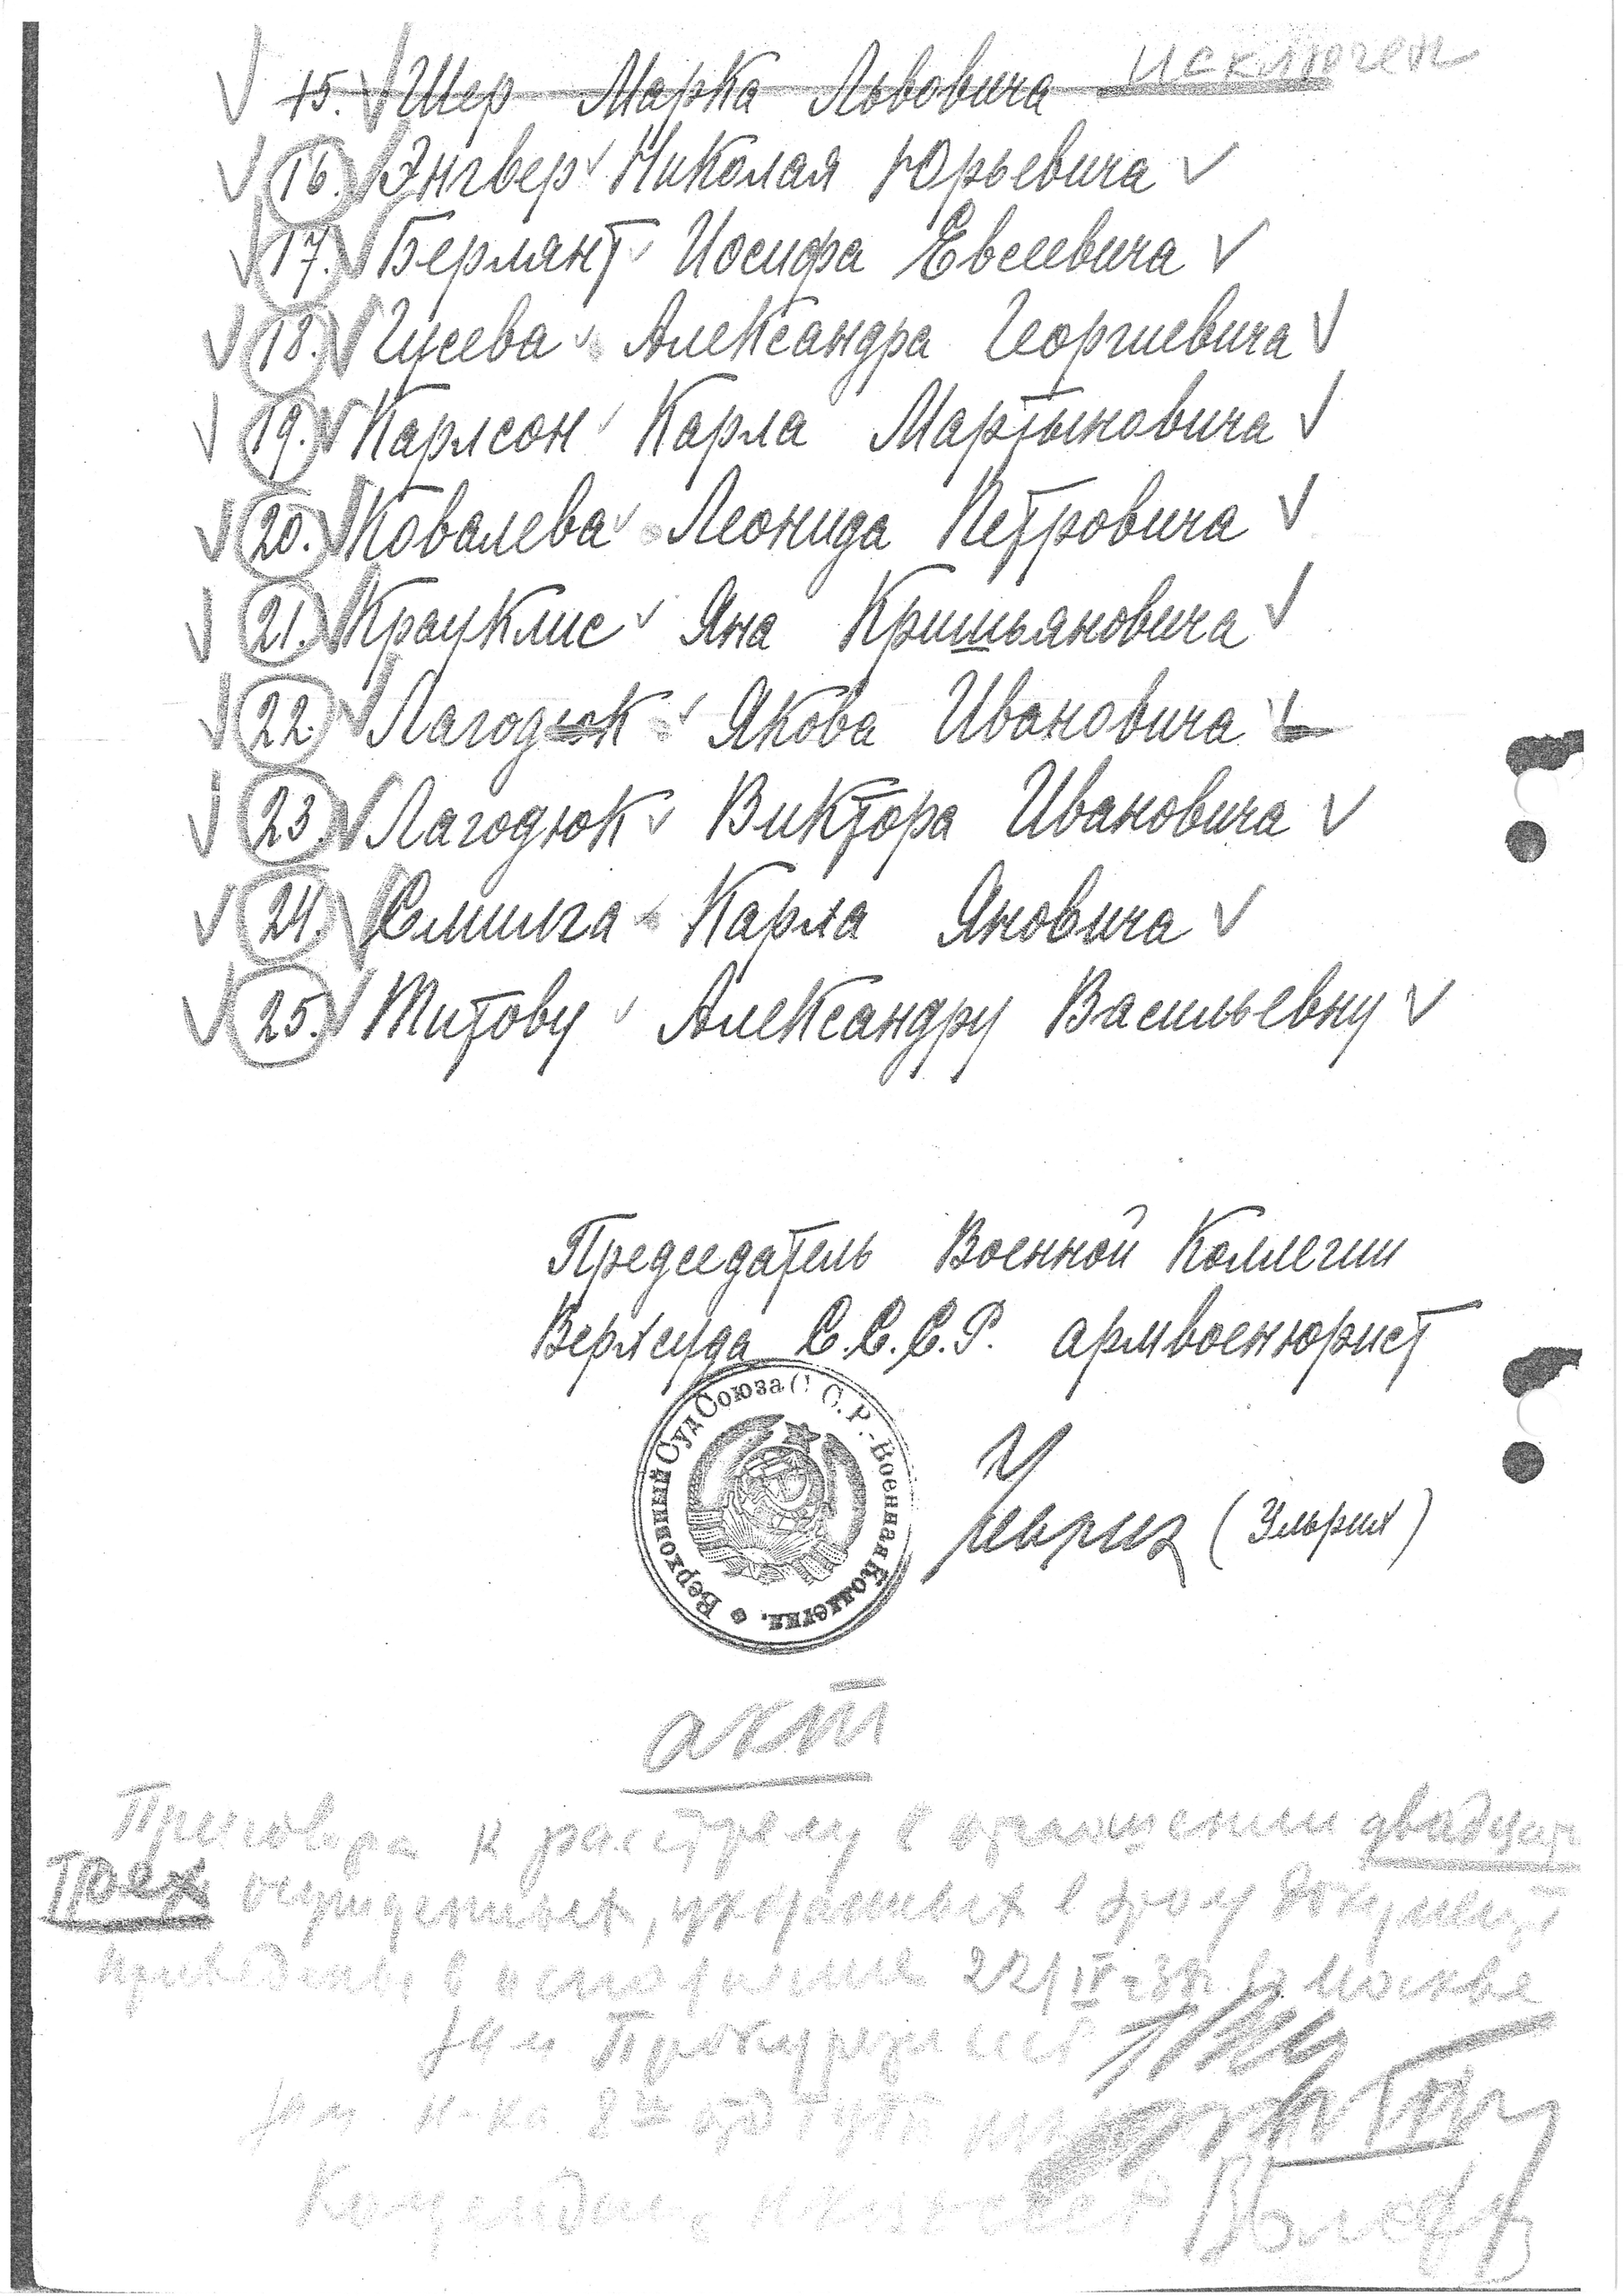 15. Шер Марка Львовича исключен
16. Энгвер Николая Юрьевича
17. Берлянт Иосифа Евсеевича
18. Гусева Александра Георгиевича
19. Карлсон Карла Мартыновича
20. Ковалева Леонида Петровича
21. Крауклис Яна Кришьяновича
22. Лагодюк Якова Ивановича
23. Лагодюк Виктора Ивановича
24. Смилга Карла Яновича
25. Титову Александру Васильевну
Председатель Военной Коллегии
Верхсуда С.С.С.Р. армвоенюрист
Ульрих (Ульрих)
Верховный Суд Союза С.С.Р.-Военная Коллегия.
акт
Приговора к расстрелу в отношении двадцати
трех осужденных, указанных в этом документе
приведены в исполнение 22/IV-38г. в Москве
Зам Прокурора
Зам. н-ка 8го отд
Комендант НКВД СССР